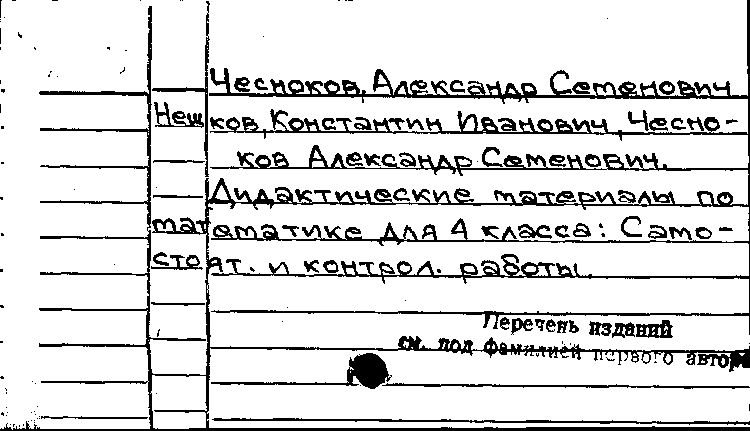 Чесноков, Александр Семенович
Нешков, Константин Иванович, Чесно-
ков Александр Семенович.
Дидактические материалы по
математике для 4 класса: Само-
стоят. и контрол. работы.
Перечень изданий
см. под фамилией первого автора